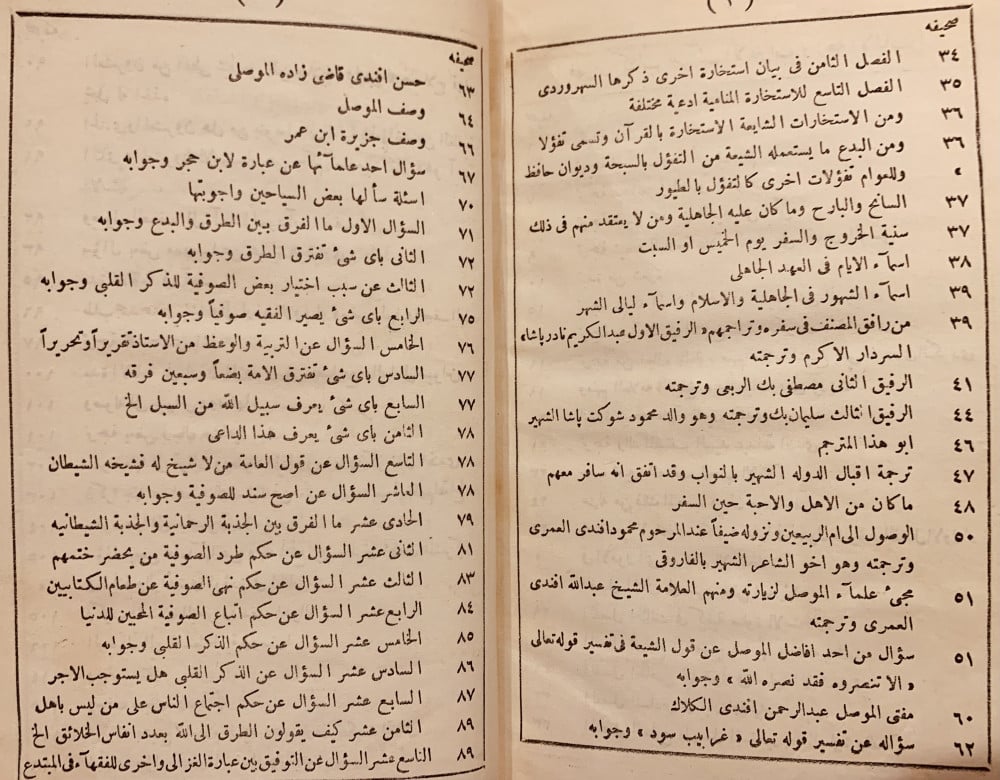 (٢)
صحيفه
٣٤ الفصل الثامن فى بيان استخارة اخرى ذكرها السهروردى
٣٥ الفصل التاسع للاستخارة المنامية ادعية مختلفة
٣٦ ومن الاستخارات الشايعة الاستخارة بالقرآن وتسمى تفؤلا
٣٦ ومن البدع ما يستعمله الشيعة من التفؤل بالسبحة وديوان حافظ
« وللعوام تفؤلات اخرى كالتفؤل بالطيور
٣٧ السانح والبارح وما كان عليه الجاهلية ومن لا يعتقد منهم فى ذلك
٣٧ سنية الخروج والسفر يوم الخميس او السبت
٣٨ اسمآء الايام فى العهد الجاهلى
٣٩ اسمآء الشهور فى الجاهلية والاسلام واسمآء ليالى الشهر
٣٩ من رافق المصنف فى سفره وتراجمهم « الرفيق الاول عبدالكريم نادر پاشا »
السردار الاكرم وترجمته
٤١ الرفيق الثانى مصطفى بك الربعى وترجمته
٤٤ الرفيق الثالث سليمان بك وترجمته وهو والد محمود شوكت پاشا الشهير
٤٦ ابو هذا المترجم
٤٧ ترجمة اقبال الدوله الشهير بالنواب وقد اتفق انه سافر معهم
٤٨ ما كان من الاهل والاحبة حين السفر
٥٠ الوصول الى ام الربيعين ونزوله ضيفاً عند المرحوم محمود افندى العمرى
وترجمته وهو اخو الشاعر الشهير بالفاروقى
٥١ مجئ علمآء الموصل لزيارته ومنهم العلامة الشيخ عبدالله افندى
العمرى وترجمته
٥١ سؤال من احد افاضل الموصل عن قول الشيعة فى تفسير قوله تعالى
« الا تنصروه فقد نصره الله » وجوابه
٦٠ مفتى الموصل عبدالرحمن افندى الكلاك
٦٢ سؤاله عن تفسير قوله تعالى « غرابيب سود » وجوابه
صحيفه
٦٣ حسن افندى قاضى زاده الموصلى
٦٤ وصف الموصل
٦٦ وصف جزيرة ابن عمر
٦٧ سؤال احد علمآئها عن عبارة لابن حجر وجوابه
٧٠ اسئلة سألها بعض السياحين واجوبتها
٧١ السؤال الاول ما الفرق بين الطرق والبدع وجوابه
٧٢ الثانى باى شئ تفترق الطرق وجوابه
٧٢ الثالث عن سبب اختيار بعض الصوفية للذكر القلبى وجوابه
٧٥ الرابع باى شئ يصير الفقيه صوفياً وجوابه
٧٦ الخامس السؤال عن التربية والوعظ من الاستاذ تقريراً وتحريراً
٧٧ السادس باى شئ تفترق الامة بضعاً وسبعين فرقه
٧٧ السابع باى شئ يعرف سبيل الله من السبل الخ
٧٨ الثامن باى شئ يعرف هذا الداعى
٧٨ التاسع السؤال عن قول العامة من لا شيخ له فشيخه الشيطان
٧٨ العاشر السؤال عن اصح سند للصوفية وجوابه
٧٩ الحادى عشر ما الفرق بين الجذبة الرحمانية والجذبة الشيطانيه
٨١ الثانى عشر السؤال عن حكم طرد الصوفية من يحضر ختمهم
٨٣ الثالث عشر السؤال عن حكم نهى الصوفية عن طعام الكتابيين
٨٤ الرابع عشر السؤال عن حكم اتباع الصوفية المحبين للدنيا
٨٥ الخامس عشر السؤال عن حكم الذكر القلبى وجوابه
٨٦ السادس عشر السؤال عن الذكر القلبى هل يستوجب الاجر
٨٧ السابع عشر السؤال عن حكم اجتماع الناس على من ليس باهل
٨٩ الثامن عشر كيف يقولون الطرق الى الله بعدد انفاس الخلائق الخ
٨٩ التاسع عشر السؤال عن التوفيق بين عبارة الغزالى واخرى للفقهآء فى المبتدع